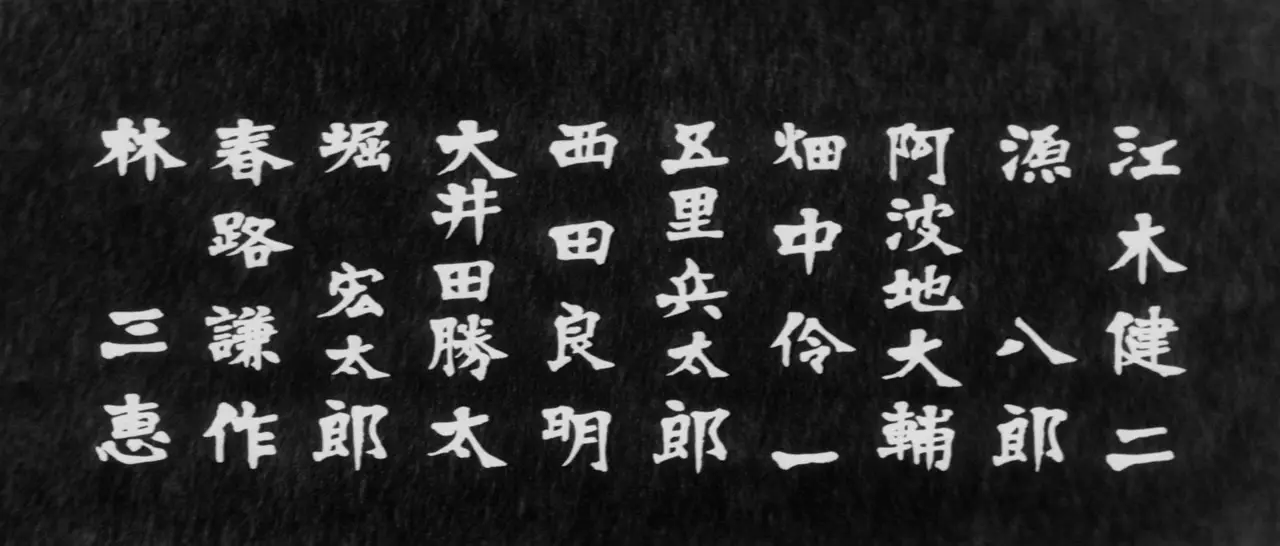 江木健二
源八郎
阿波地大輔
畑中伶一
五里兵太郎
西田良明
大井田勝太
堀宏太郎
春路謙作
林三恵